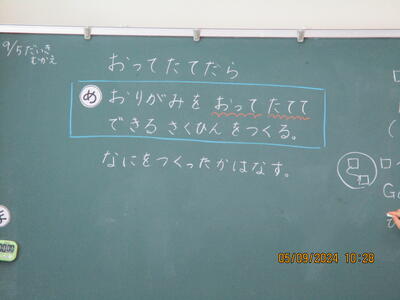 9/5だいき
むかえ
おってたてたら
め
おりがみを おって たてて
できる さくひん をつくる。
なにをつくったかはなす。
05/09/2024 10:28